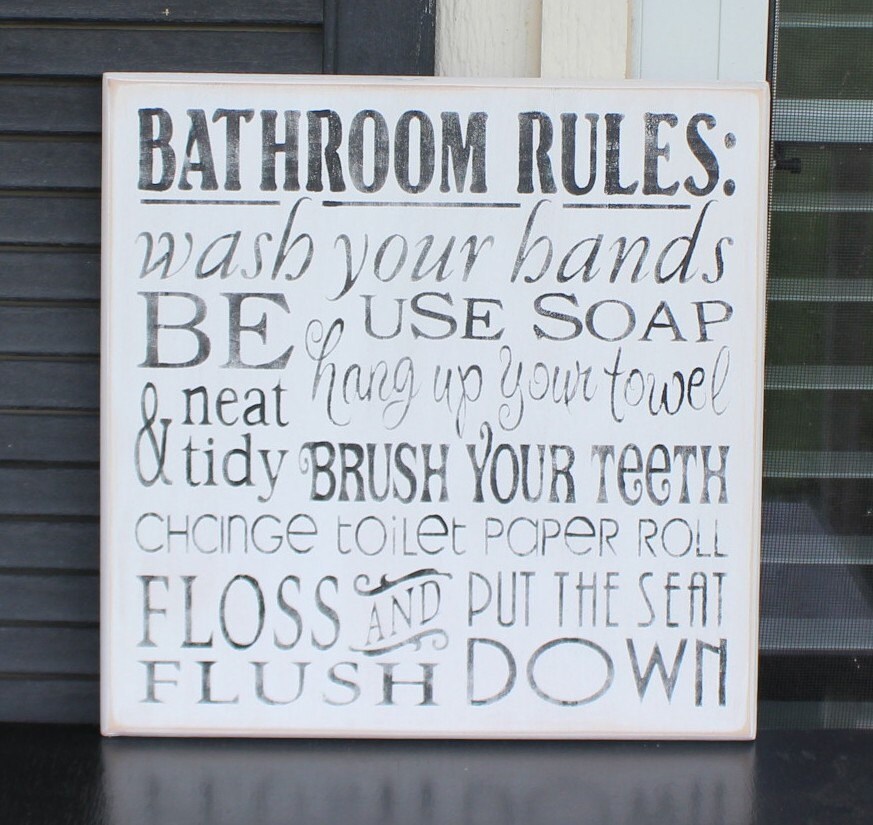 BATHROOM RULES:
wash your hands
BE
& neat
tidy
USE SOAP
hang up your towel
BRUSH YOUR TeeTH
CHaNGe toiLet PaPeR ROLL
FLOSS AND
FLUSH
PUT THE SEAT
DOWN